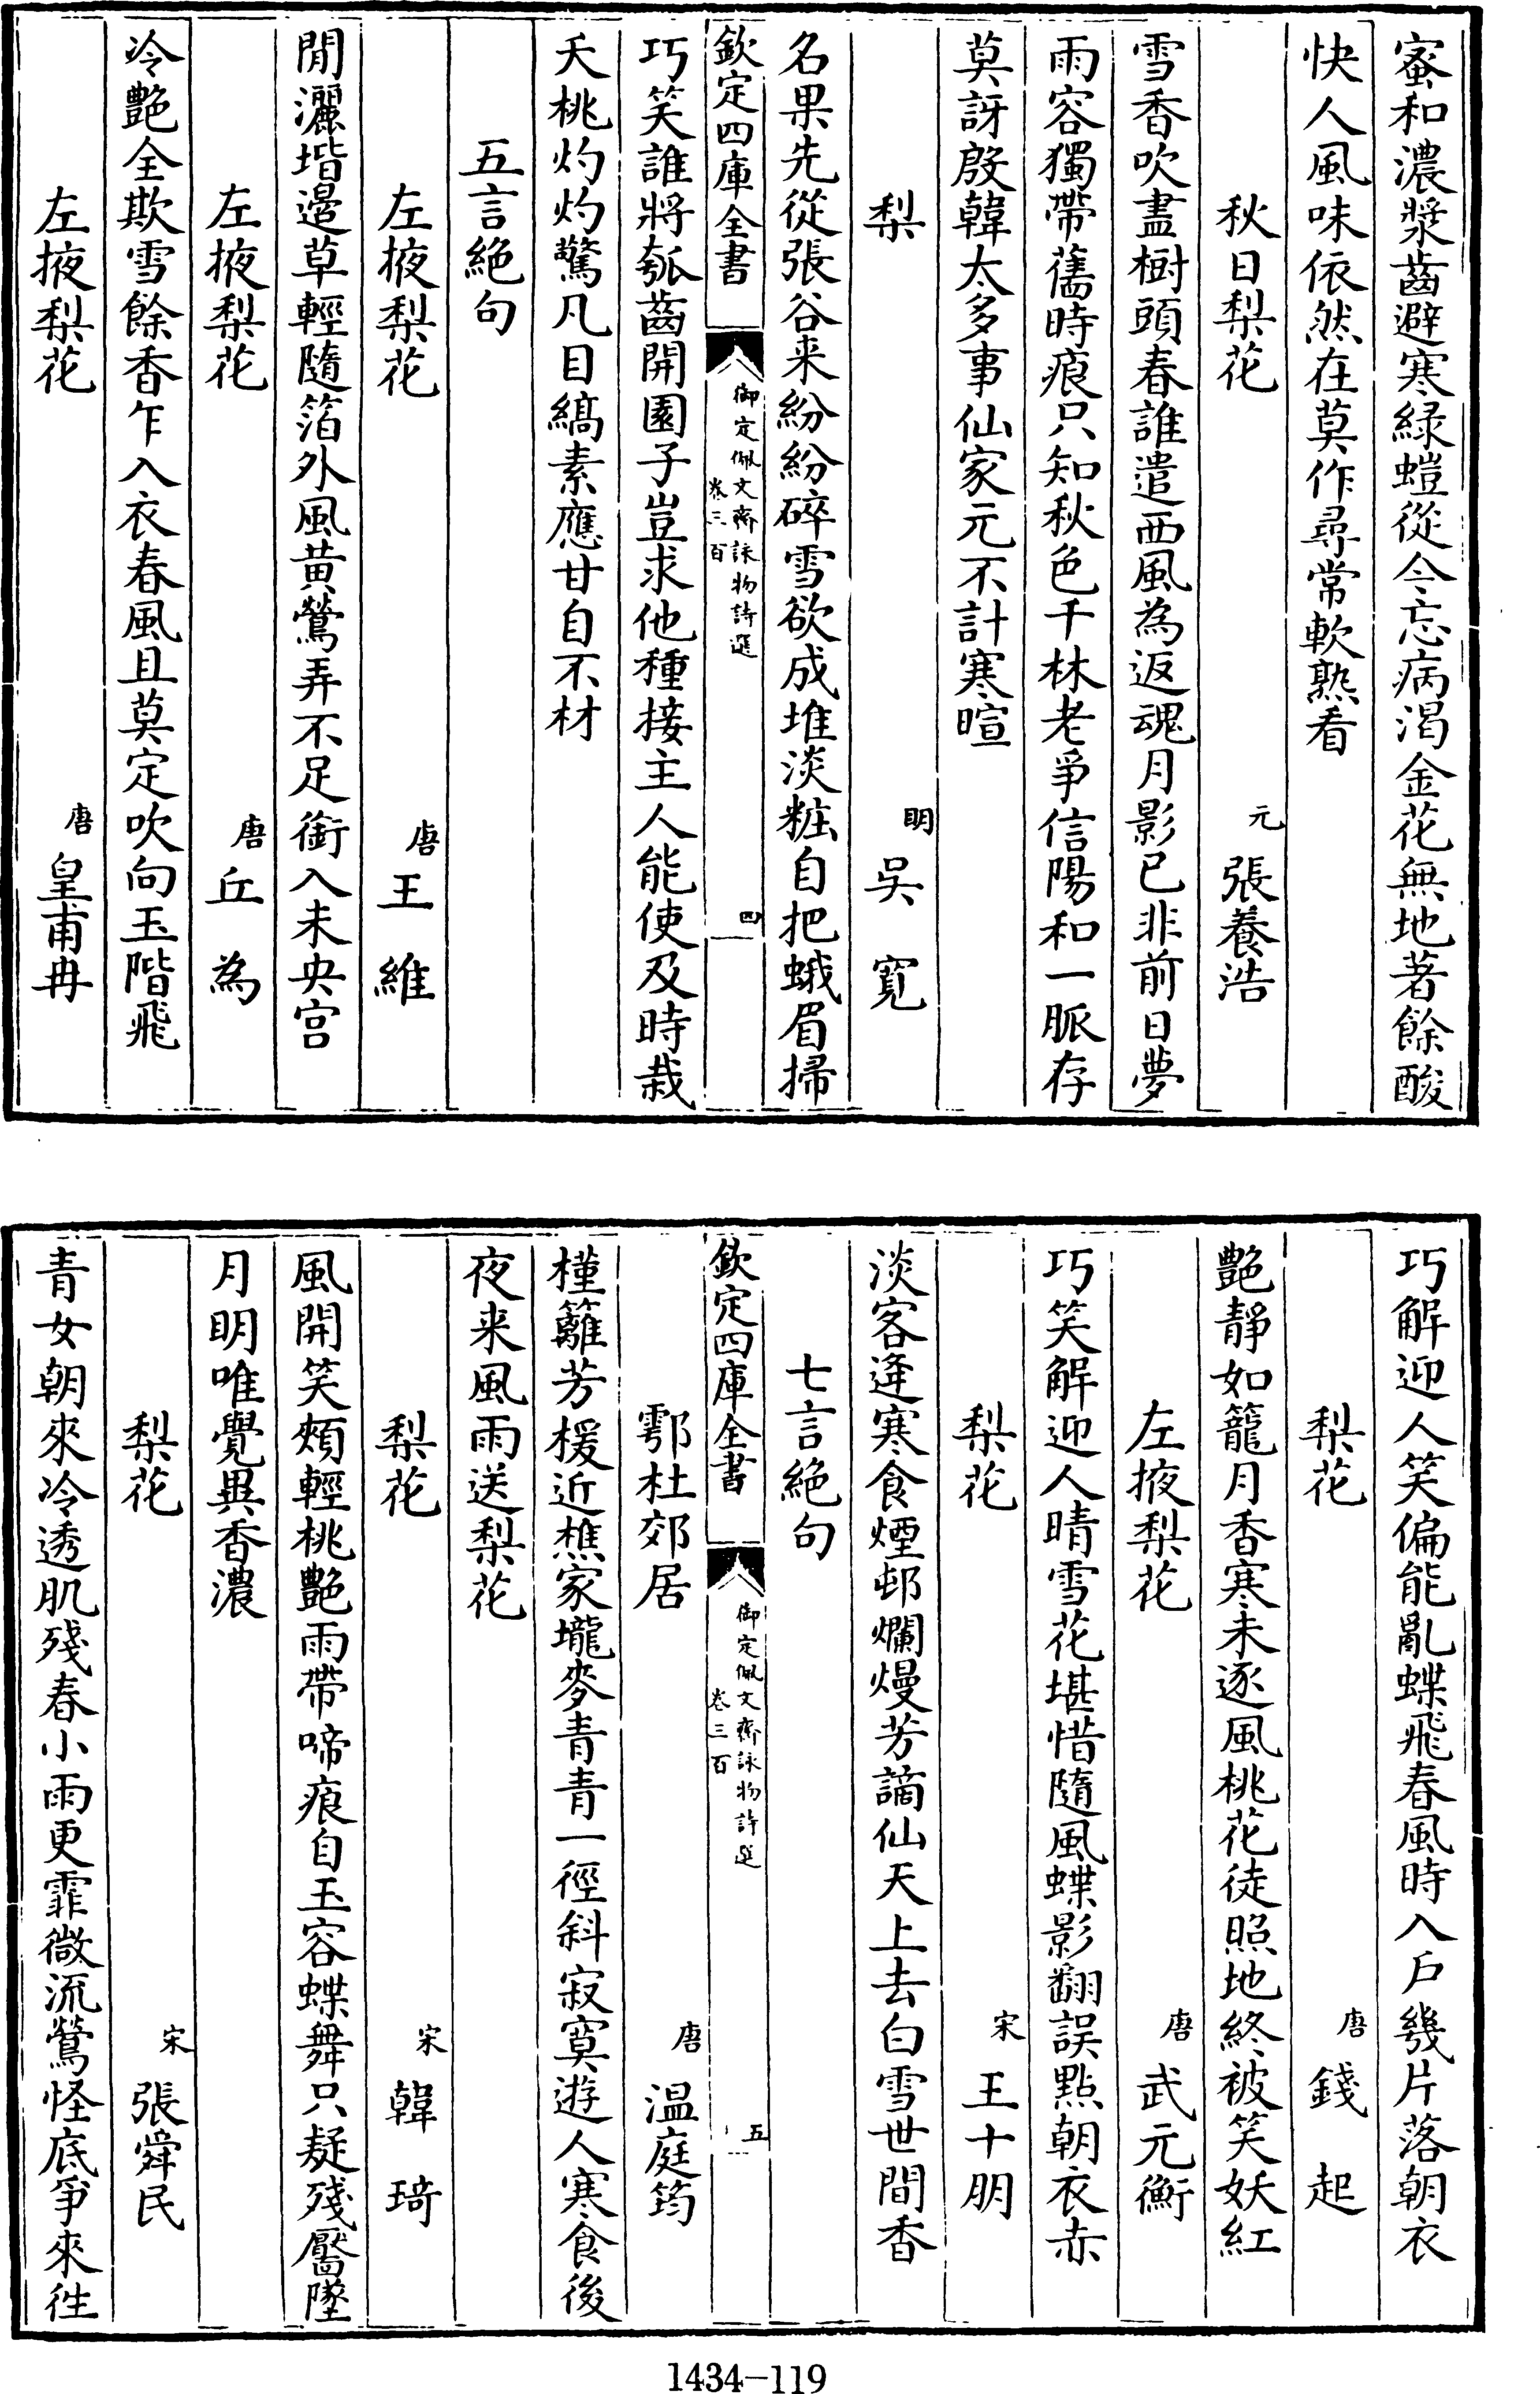 蜜和濃漿齒避寒緑螘從今忘病渇金花無地著餘酸
快人風味依然在莫作尋常軟熟看
秋日梨花 元 張養浩
雪香吹盡樹頭春誰遣西風為返魂月影已非前日夢
雨容獨帶舊時痕只知秋色千林老爭信陽和一脈存
莫訝殷韓太多事仙家元不計寒暄
梨 明 吳寛
名果先從張谷来紛紛碎雪欲成堆淡粧自把蛾眉掃
欽定四庫全書
御定佩文齋詠物詩選
卷三百
四
巧笑誰將瓠齒開園子豈求他種接主人能使及時栽
夭桃灼灼驚凡目縞素應甘自不材
五言絶句
左掖梨花 唐 王維
閒灑堦邊草輕隨箔外風黄鶯弄不足銜入未央宫
左掖梨花 唐 丘為
冷艷全欺雪餘香乍入衣春風且莫定吹向玉階飛
左掖梨花 唐 皇甫冉
巧解迎人笑偏能亂蝶飛春風時入戶幾片落朝衣
梨花 唐 錢起
艷靜如籠月香寒未逐風桃花徒照地終被笑妖紅
左掖梨花 唐 武元衡
巧笑解迎人晴雪花堪惜隨風蝶影翻誤點朝衣赤
梨花 宋 王十朋
淡客逄寒食煙邨爛熳芳謫仙天上去白雪世間香
七言絶句
欽定四庫全書
御定佩文齋詠物詩選
卷三百
五
鄠杜郊居 唐 温庭筠
槿籬芳援近樵家壠麥青青一徑斜寂寞遊人寒食後
夜来風雨送梨花
梨花 宋 韓琦
風開笑頰輕桃艷雨帶啼痕自玉容蝶舞只疑殘靨墜
月明唯覺異香濃
梨花 宋 張舜民
青女朝來冷透肌殘春小雨更霏微流鶯怪底爭來徃
1434-119